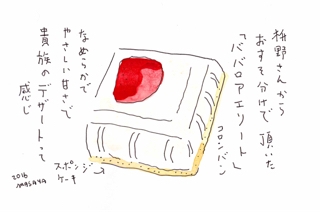 枡野さんから
おすそ分けで頂いた
「ババロアエリート」
コロンバン
なめらかで
やさしい甘さで
貴族のデザートって
感じ
スポンジ
ケーキ
2016
MASAYA